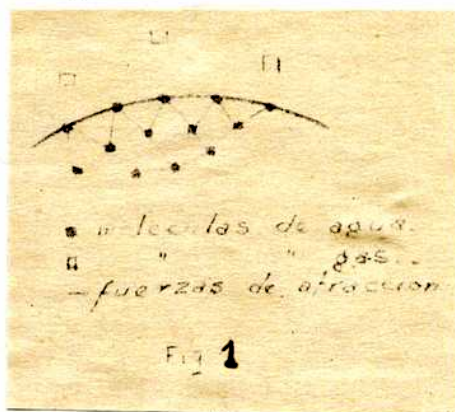 moleculas de agua.
" " gas..
fuerzas de atraccion
Fig 1